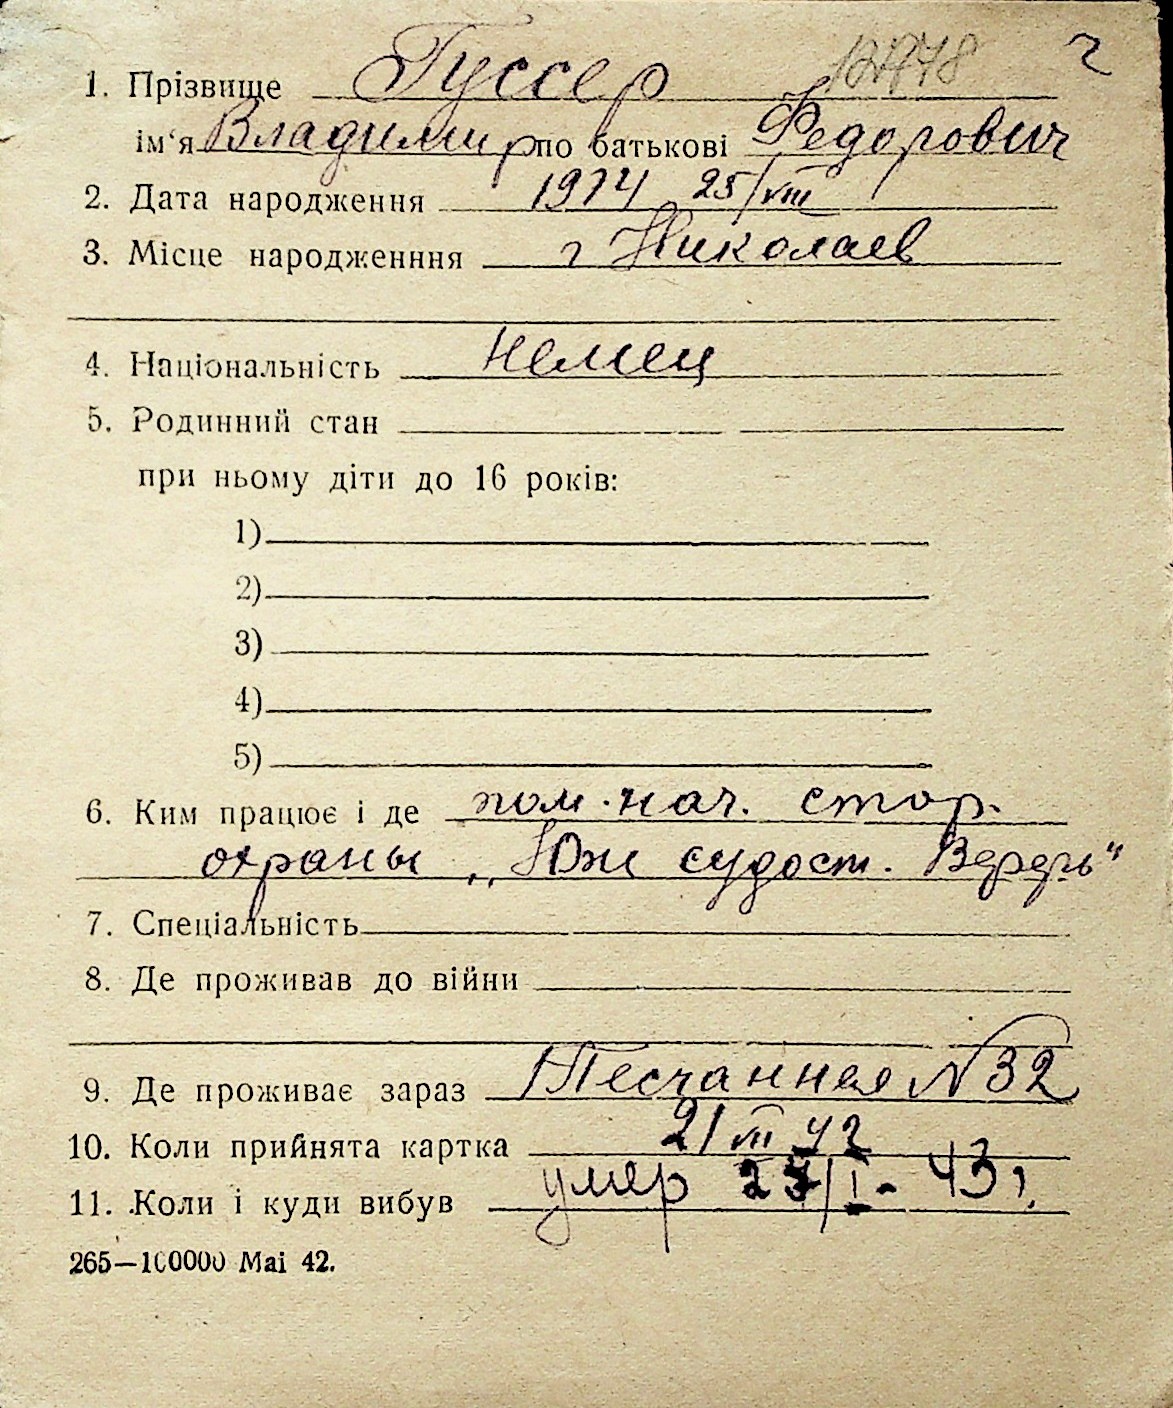 12778 г
1. Прізвище Гуссер
ім'я Владимир по батькові Федорович
2. Дата народження 1914 25/VIII
3. Місце народженння г Николаев
4. Національність Немец
5. Родинний стан
при ньому діти до 16 років:
1)
2)
3)
4)
5)
6. Ким працює і де пом. нач. стор.
охраны „Юж судост. Верфь"
7. Спеціальність
8. Де проживав до війни
9. Де проживає зараз Песчанная N 32
10. Коли прийнята картка 21 VII 42
11. Коли і куди вибув умер 27/I - 43 г.
265—100000 Mai 42.